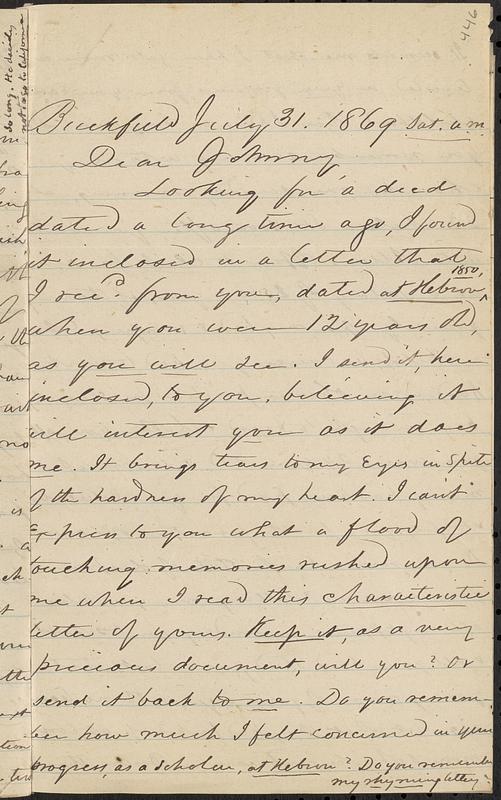 446
Buckfield July 31. 1869 Sat. a.m.
Dear Johnny
Looking for a deed
dated a long time ago, I found
it inclosed in a letter that
I rec'd from you, dated at Hebron, 1850,
when you were 12 years old,
as you will see. I send it, here
inclosed, to you, believing it
will interest you as it does
me. It brings tears to my Eyes in Spite
of the hardness of my heart. I can't
Express to you what a flood of
touching memories rushed upon
me when I read this characteristic
letter of yours. Keep it, as a very
precious document, will you? Or
send it back to me. Do you remem-
ber how much I felt concerned in your
progress, as a scholar, at Hebron? Do you remember
my rhyming letters
so long. He decides
not to go to California